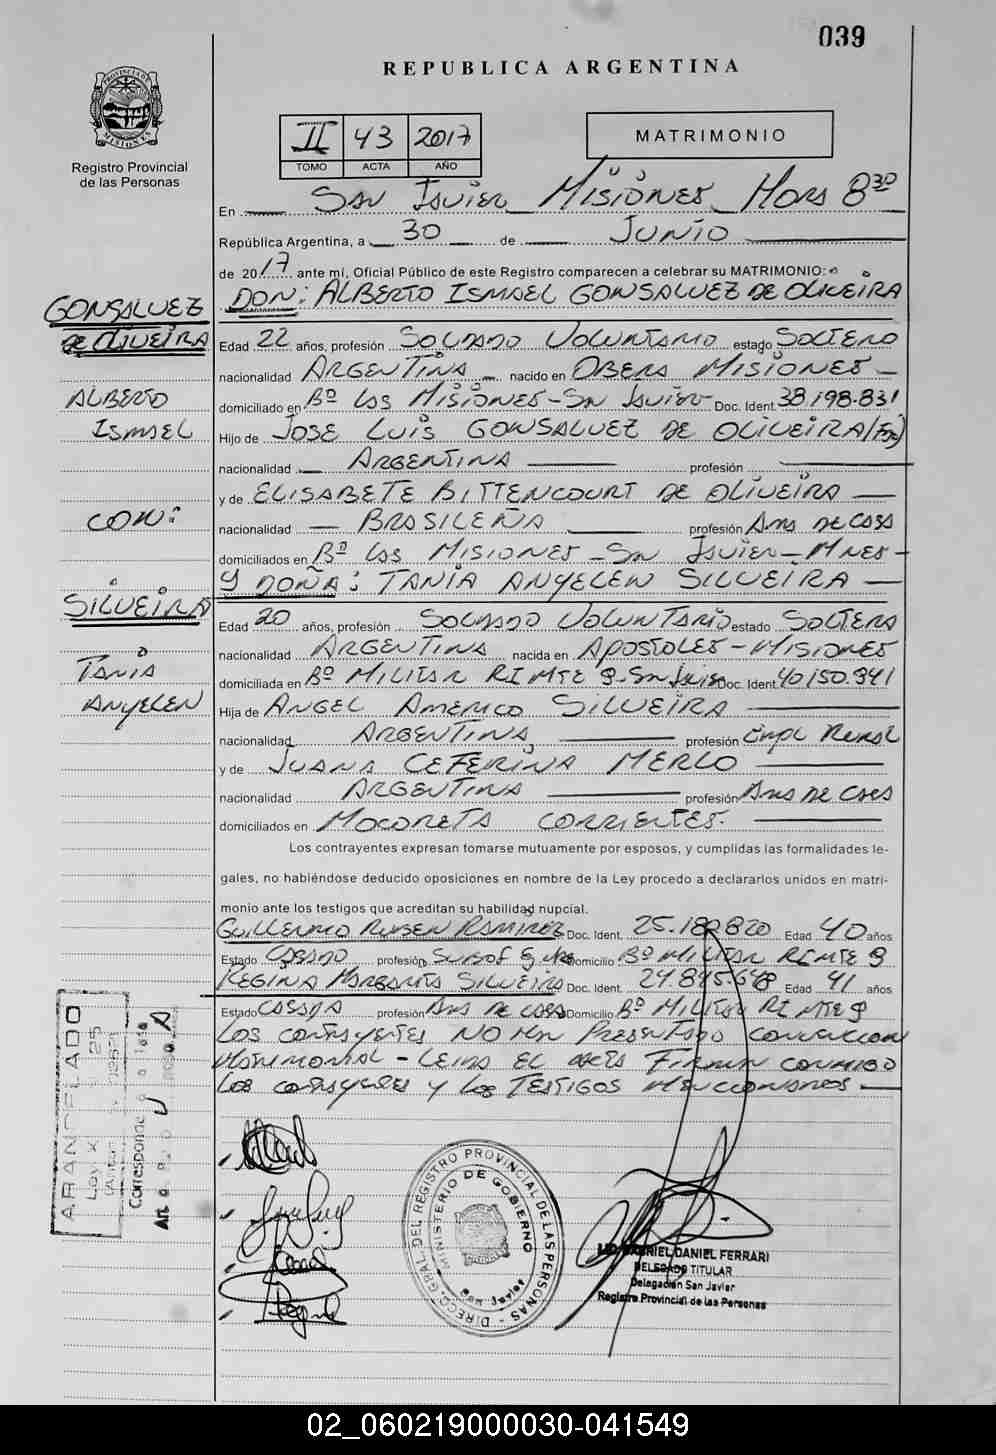 039
REPUBLICA ARGENTINA
PROVINCIA DE MISIONES
Registro Provincial
de las Personas
II 43 2017
TOMO ACTA AÑO
MATRIMONIO
En San Javier Misiones Hors 8 30
República Argentina, a 30 de Junio
de 2017 ante mí, Oficial Público de este Registro comparecen a celebrar su MATRIMONIO:
DON: ALBERTO ISMAEL GONSALVEZ DE OLIVEIRA
GONSALVEZ
DE OLIVEIRA
ALBERTO
ISMAEL
CON:
SILVEIRA
TANIA
ANYELEN
Edad 22 años, profesión Soldado Voluntario estado Soltero
nacionalidad ARGENTINA nacido en OBERA MISIONES
domiciliado en Bº Las Misiones - San Javier Doc. Ident. 38.198.831
Hijo de JOSE LUIS GONSALVEZ DE OLIVEIRA
nacionalidad ARGENTINA profesión
y de ELISABETE BITTENCOURT DE OLIVEIRA
nacionalidad BRASILEÑA profesión Ama de casa
domiciliados en Bº Las Misiones - San Javier - Mnes -
Y DOÑA: TANIA ANYELEN SILVEIRA
Edad 20 años, profesión Soldado Voluntario estado Soltera
nacionalidad ARGENTINA nacida en APOSTOLES - MISIONES
domiciliada en Bº MILITAR RIMTE 9 - San Javier Doc. Ident. 40.150.941
Hija de ANGEL AMERICO SILVEIRA
nacionalidad ARGENTINA profesión Empl Rural
y de JUANA CEFERINA MERLO
nacionalidad ARGENTINA profesión Ama de casa
domiciliados en MOCORETA CORRIENTES.
Los contrayentes expresan tomarse mutuamente por esposos, y cumplidas las formalidades le-
gales, no habiéndose deducido oposiciones en nombre de la Ley procedo a declararlos unidos en matri-
monio ante los testigos que acreditan su habilidad nupcial.
GUILLERMO RUBEN RAMIREZ Doc. Ident. 25.180.820 Edad 40 años
Estado CASADO profesión Domicilio Bº MILITAR RIMTE 9
REGINA MARGARITA SILVEIRA Doc. Ident. Edad 41 años
Estado CASADA profesión Ama de casa Domicilio Bº MILITAR RIMTE 9
Los contrayentes NO han Presentado convencion
Matrimonial - Leida el acta Firman conmigo
los contrayentes y los TESTIGOS mencionados
ARANCELADO
Ley X
Corresponde
Art.
DIREC. GRAL. DEL REGISTRO PROVINCIAL DE LAS PERSONAS -
MINISTERIO DE GOBIERNO
San Javier
GABRIEL DANIEL FERRARI
DELEGADO TITULAR
Delegación San Javier
Registro Provincial de las Personas
02_060219000030-041549